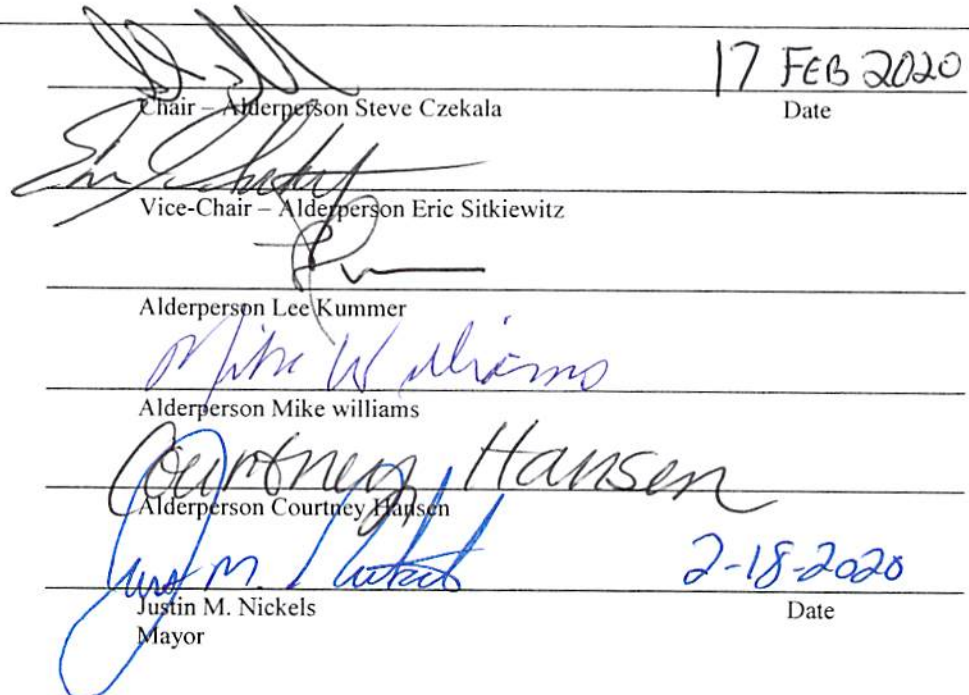 17 FEB 2020
Chair – Alderperson Steve Czekala Date
Vice-Chair – Alderperson Eric Sitkiewitz
Alderperson Lee Kummer
Mike Williams
Alderperson Mike williams
Courtney Hansen
Alderperson Courtney Hansen
2-18-2020
Justin M. Nickels Date
Mayor